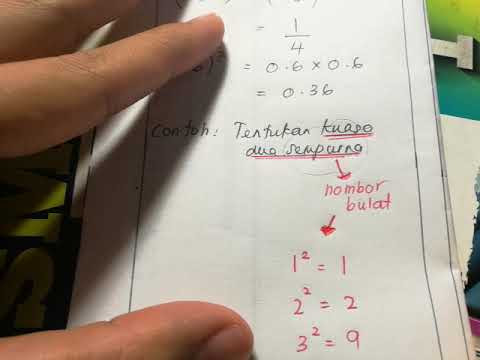 = 1/4
)² = 0.6 × 0.6
= 0.36
Contoh: Tentukan kuasa
dua sempurna
nombor
bulat
1² = 1
2² = 2
3² = 9